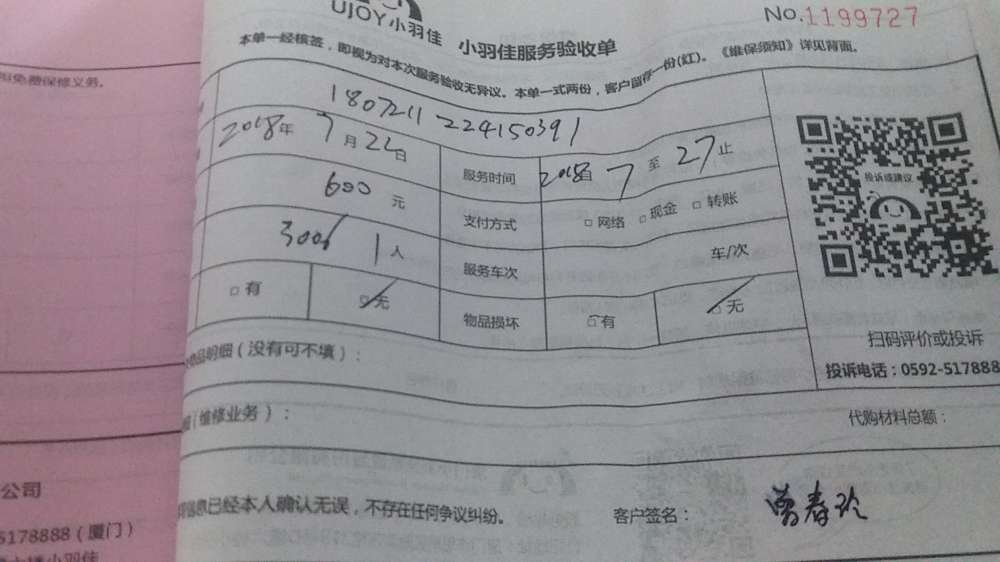 UJOY小羽佳 小羽佳服务验收单
No.1199727
本单一经核签，即视为对本次服务验收无异议。本单一式两份，客户留存一份(红)。《维保须知》详见背面。
免费保修义务。
1807211224150391
2018年 7月22日 服务时间 2018 7 至 27止
600 元 支付方式 □网络 □现金 □转账
1人 服务车次 车/次
□有 □无 物品损坏 □有 □无
投诉或建议
扫码评价或投诉
投诉电话：0592-517888
品明细（没有可不填）：
（维修业务）： 代购材料总额：
信息已经本人确认无误，不存在任何争议纠纷。 客户签名： 曾春玲
公司
5178888（厦门）
楼小羽佳